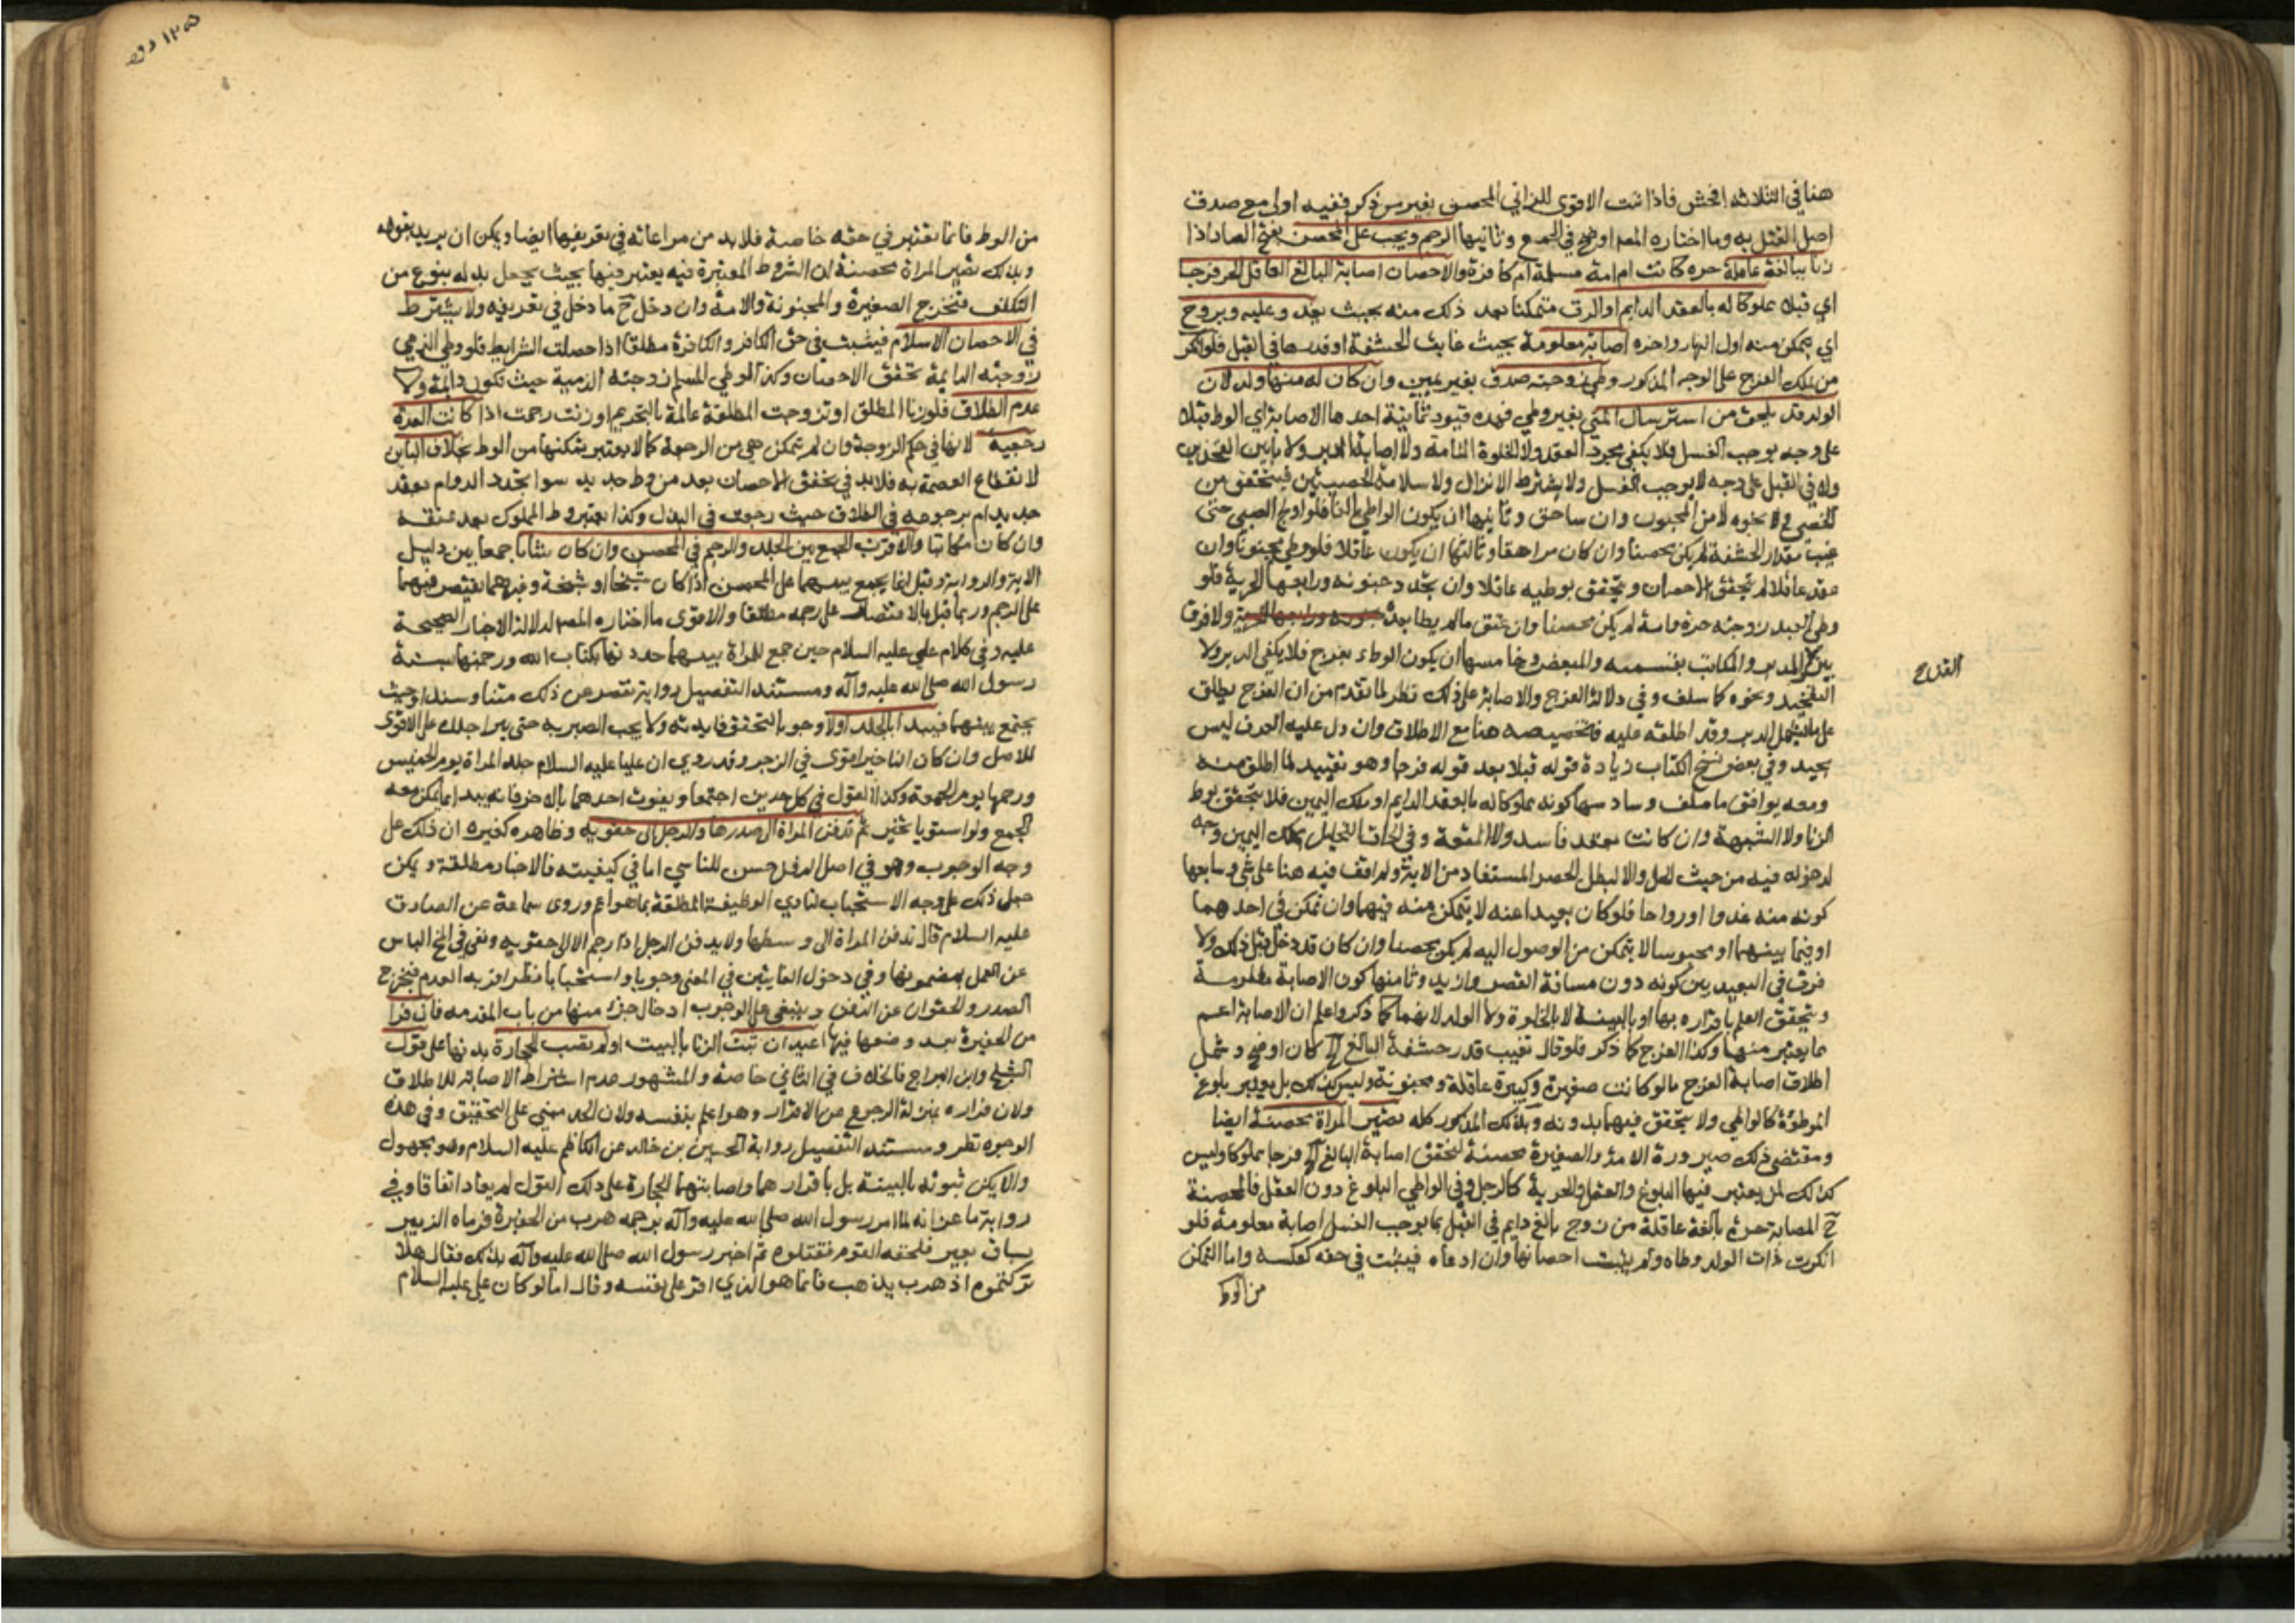 هنا في الثلاثة افحش فاذا ثبت الاقوى للزاني المحصن بغير من ذكر ففيه اولى مع صدق
اصل القتل به وما اختاره المصـ اوضح في الجمع وثانيها الرجم ويجب على المحصن بفتح الصاد اذا
زنا ببالغة عاملة حره كانت ام امة مسلمة ام كافرة والاحصان اصابة البالغ العاقل الحر فرجا
اي قبلا مملوكا له بالعقد الدايم او الرق متمكنا بعد ذلك منه بحيث يغدو عليه ويروح
اي يتمكن منه اول النهار واخره اصابة معلومة بحيث غابت الحشفة او قدرها في القبل فلو انكر
من ملك الفرج على الوجه المذكور وطي زوجته صدق بغير يمين وان كان له منها ولد لان
الولد قد يلحق من استرسال المني بغير وطي فهذه قيود ثمانية احدها الاصابة اي الوط قبلا
على وجه يوجب الغسل فلا يكفي مجرد العقد ولا الخلوة التامة ولا اصابة الدبر ولا ما بين الفخذين
ولا في القبل على وجه لا يوجب الغسل ولا يشترط الانزال ولا سلامة الخصيتين فيتحقق من
الخصي و نحوه لا من المجبوب وان ساحق وثانيها ان يكون الواطي بالغا فلو اولج الصبي حتى
غيب مقدار الحشفة لم يكن محصنا وان كان مراهقا وثالثها ان يكون عاقلا فلو وطي مجنونا وان
عقد عاقلا لم يتحقق الاحصان ويتحقق بوطيه عاقلا وان تجدد جنونه ورابعها الحرية فلو
وطي العبد زوجته حرة وامة لم يكن محصنا وان عتق مالم يطا بعده ولا فرق
بين المدبر والمكاتب بقسميه والمبعض وخامسها ان يكون الوطء بفرج فلا يكفي الدبر ولا
التفخيذ ونحوه كما سلف وفي دلالة الفرج والاصابة على ذلك نظر لما تقدم من ان الفرج يطلق
على ما يشمل الدبر وقد اطلقه عليه فتخصيصه هنا مع الاطلاق وان دل عليه العرف ليس
بجيد وفي بعض نسخ الكتاب زيادة قوله قبلا بعد قوله فرجا وهو تقييد لما اطلق منه
ومعه يوافق ما سلف وسادسها كونه مملوكا له بالعقد الدايم او ملك اليمين فلا يتحقق بوط
الزنا ولا الشبهة وان كانت بعقد فاسد ولا المتعة وفي الحاق التحليل بملك اليمين وجه
لدخوله فيه من حيث الحل والا لبطل الحصر المستفاد من الاية ولم اقف فيه هنا على شي وسابعها
كونه متمكنا منه غدوا ورواحا فلو كان بعيدا عنه لا يتمكن منه فيهما وان تمكن في احدهما
او فيما بينهما او محبوسا لا يتمكن من الوصول اليه لم يكن محصنا وان كان قد دخل قبل ذلك ولا
فرق في البعيد بين كونه دون مسافة القصر وازيد وثامنها كون الاصابة معلومة
ويتحقق العلم باقراره بها او بالبينة لا بالخلوة ولا الولد لانهما كما ذكر واعلم ان الاصابة اعم
مما يعتبر منها وكذا الفرج كما ذكر فلو قال تغيب قدر حشفة البالغ الخ كان اوضح وشمل
اطلاق اصابة الفرج ما لو كانت صغيرة وكبيرة عاقلة ومجنونة وليس كذلك بل يعتبر بلوغ
الموطوءة كالواطي ولا يتحقق فيهما بدونه وبذلك المذكور كله تصير المراة محصنة ايضا
ومقتضى ذلك صيرورة الامة والصغيرة محصنة لتحقق اصابة البالغ الخ فرجا مملوكا وليس
كذلك بل يعتبر فيها البلوغ والعقل والحرية كالرجل وفي الواطي البلوغ دون العقل فالمحصنة
ح المصابة حرة بالغة عاقلة من زوج بالغ دايم في القبل بما يوجب الغسل اصابة معلومة فلو
انكرت ذات الولد وطاه ولم يثبت احصانها وان ادعاه فيثبت في حقه كعكسه واما التمكن
من الوط
من الوط فانما يعتبر في حقه خاصة فلا بد من مراعاته في تعريفها ايضا ويمكن ان يريد بقوله
وبذلك تصير المراة محصنة ان الشروط المعتبرة فيه يعتبر فيها بحيث يجعل بدله بنوع من
التكلف فتخرج الصغيرة والمجنونة والامة وان دخل ح ما دخل في تعريفه ولا يشترط
في الاحصان الاسلام فيثبت في حق الكافر والكافرة مطلقا اذا حصلت الشرايط فلو وطي الذمي
زوجته الدايمة تحقق الاحصان وكذا لو وطي المسلم زوجته الذمية حيث تكون دايمة ولا
عدم الطلاق فلو زنا المطلق او تزوجت المطلقة عالمة بالتحريم او زنت رجمت اذا كانت العدة
رجعية لانها في حكم الزوجة وان لم تتمكن هي من الرجعة كما لا يعتبر تمكنها من الوط بخلاف الباين
لانقطاع العصمة به فلا بد في تحقق الاحصان بعده من وط جديد سوا تجدد الدوام بعقد
جديد ام برجوعه في الطلاق حيث رجعت في البذل وكذا يعتبر وط المملوك بعد عتقه
وان كان مكاتبا والاقرب الجمع بين الجلد والرجم في المحصن وان كان شابا جمعا بين دليل
الاية والرواية وقيل انما يجمع بينهما على المحصن اذا كان شيخا او شيخة وغيرهما يقتصر فيهما
على الرجم وربما قيل بالاقتصار على رجمه مطلقا والاقوى ما اختاره المصـ لدلالة الاخبار الصحيحة
عليه وفي كلام علي عليه السلام حين جمع للمراة بينهما حددتها بكتاب الله ورجمتها بسنة
رسول الله صلى الله عليه وآله ومستند التفصيل رواية تقصر عن ذلك متنا وسندا وحيث
يجتمع بينهما فيبدا بالجلد اولا وجوبا لتحقق فايدته ولا يجب الصبر به حتى يبرا جلده على الاقوى
للاصل وان كان التاخير اقوى في الزجر وقد روي ان عليا عليه السلام جلد المراة يوم الخميس
ورجمها يوم الجمعة وكذا القول في كل حدين اجتمعا ويفوت احدهما بالاخر فانه يبدا بما يمكن معه
الجمع ولو استويا تخير ثم تدفن المراة الى صدرها والرجل الى حقويه وظاهره كغيره ان ذلك على
وجه الوجوب وهو في اصل الدفن حسن للتاسي اما في كيفيته فالاخبار مطلقة ويمكن
جعل ذلك على وجه الاستحباب لتادي الوظيفة المطلقة بما هو اعم وروى سماعة عن الصادق
عليه السلام قال تدفن المراة الى وسطها ولا يدفن الرجل اذا رجم الا الى حقويه ونفي في الخ الباس
عن العمل بمضمونها وفي دخول الغايتين في المغيى وجوبا واستحبابا نظر اقربه العدم فيخرج
الصدر والحقوان عن الدفن وينبغي على الوجوب ادخال جزء منهما من باب المقدمه فان فرا
من الحفيرة بعد وضعهما فيها اعيدا ان ثبت الزنا بالبينة او لم تصب الحجارة بدنهما على قول
الشيخ وابن البراج فالخلاف في الثاني خاصة والمشهور عدم اشتراط الاصابة للاطلاق
ولان فراره بمنزلة الرجوع عن الاقرار وهو اعلم بنفسه ولان الحد مبني على التخفيف وفي هذه
الوجوه نظر ومستند التفصيل رواية الحسين بن خالد عن الكاظم عليه السلام وهو مجهول
والا يكن ثبوته بالبينة بل باقرارهما واصابتهما الحجارة على ذلك القول لم يعادا اتفاقا وفي
رواية ماعز انه لما امر رسول الله صلى الله عليه وآله برجمه هرب من الحفيرة فرماه الزبير
بساق بعير فلحقه القوم فقتلوه ثم اخبر رسول الله صلى الله عليه وآله بذلك فقال هلا
تركتموه اذ هرب يذهب فانما هو الذي اقر على نفسه وقال اما لو كان علي عليه السلام